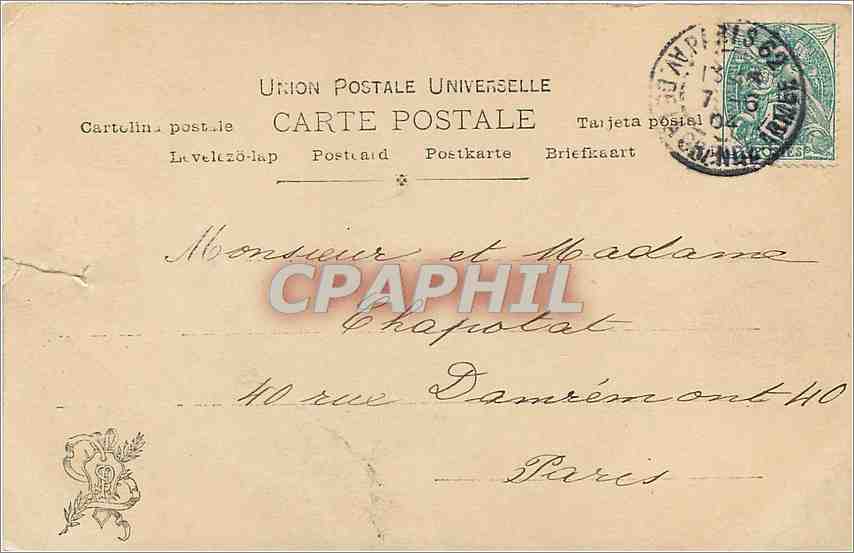 UNION POSTALE UNIVERSELLE
Cartolina postale CARTE POSTALE Tarjeta postal
Levelező-lap Postcard Postkarte Briefkaart
PARIS 62
Monsieur et Madame
CPAPHIL
Chapolat
40 rue Damrémont 40
Paris